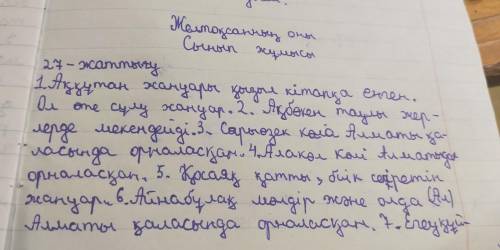 Желтоқсанның оны
Сынып жұмысы
27-жаттығу
1. Аққұтан жануары қызыл кітапқа енген.
Ол өте сұлу жануар. 2. Ақбөкен таулы жер-
лерде мекендейді. 3. Сарыөзек көлі Алматы қа-
ласында орналасқан. 4. Алакөл көлі Алматыда
орналасқан. 5. Қосаяқ қатты, биік секіретін
жануар. 6. Айнабұлақ мөлдір және онда (Ал)
Алматы қаласында орналасқан. 7.